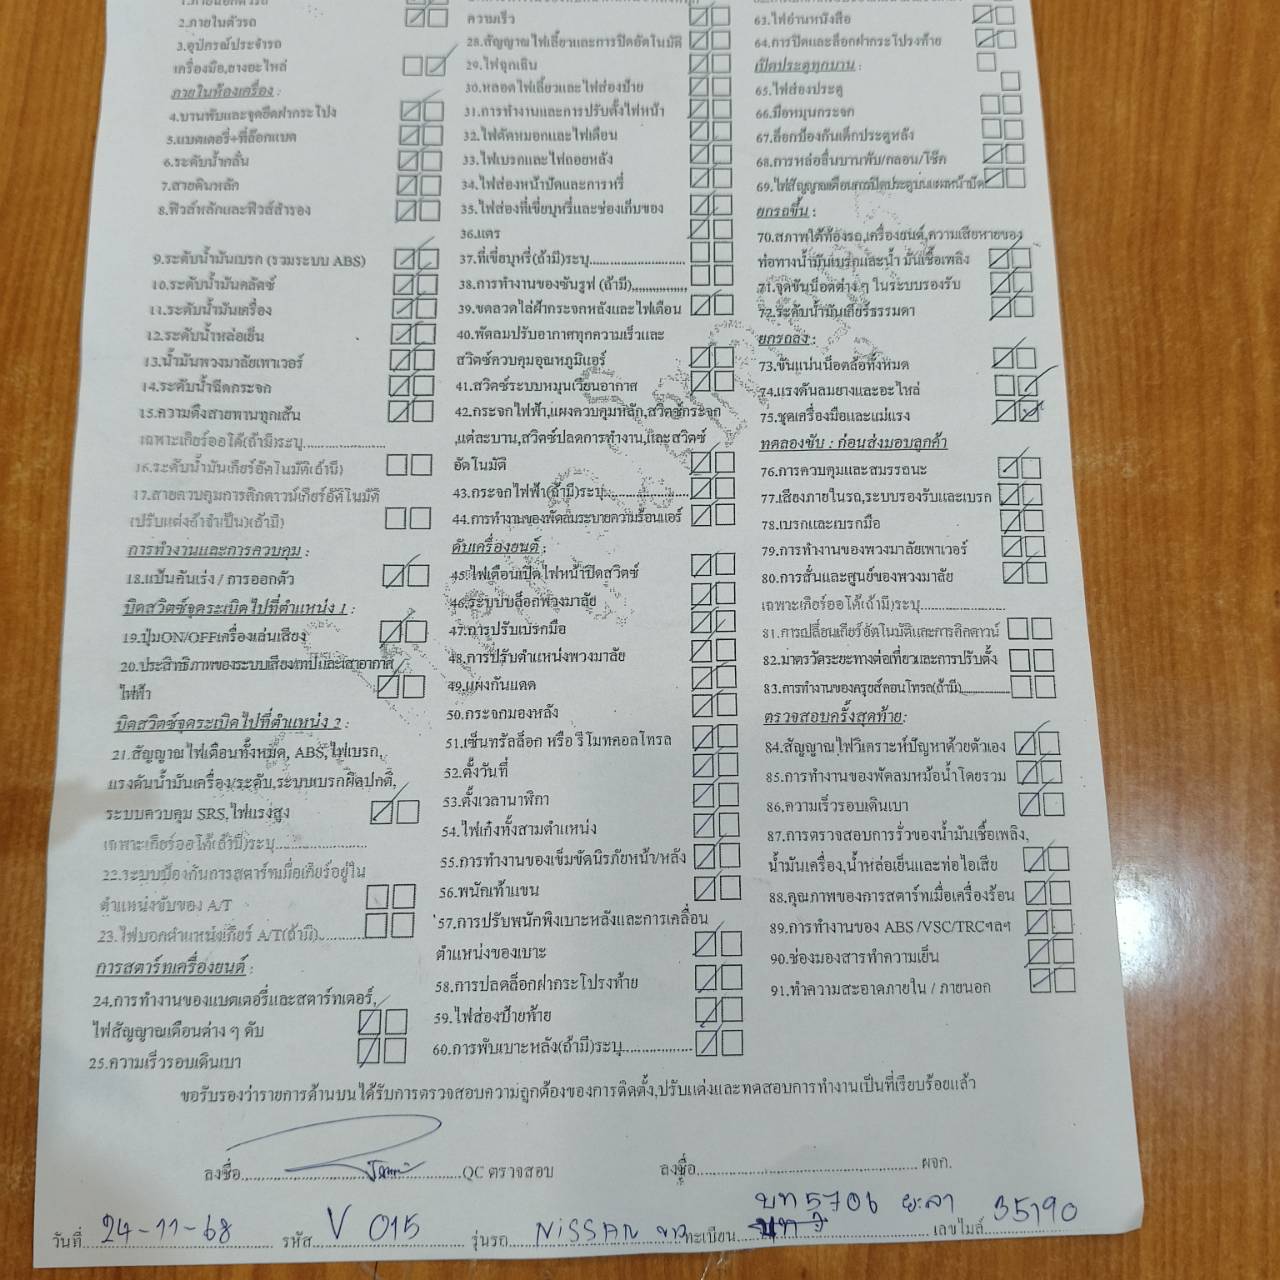 2.ภายในตัวรถ
3.อุปกรณ์ประจำรถ
เครื่องมือ,ยางอะไหล่
ภายในห้องเครื่อง :
4.บานพับและจุดยึดฝากระโปง
5.แบตเตอรี่+ที่ล๊อกแบต
6.ระดับน้ำกลั่น
7.สายดินหลัก
8.ฟิวส์หลักและฟิวส์สำรอง
9.ระดับน้ำมันเบรก (รวมระบบ ABS)
10.ระดับน้ำมันคลัตช์
11.ระดับน้ำมันเครื่อง
12.ระดับน้ำหล่อเย็น
13.น้ำมันพวงมาลัยเพาเวอร์
14.ระดับน้ำฉีดกระจก
15.ความตึงสายพานทุกเส้น
เฉพาะเกียร์ออโต้(ถ้ามี)ระบุ
16.ระดับน้ำมันเกียร์อัตโนมัติ(ถ้ามี)
17.สายควบคุมการคิกดาวน์เกียร์อัติโนมัติ
(ปรับแต่งถ้าจำเป็น)(ถ้ามี)
การทำงานและการควบคุม :
18.แป้นคันเร่ง / การออกตัว
บิดสวิตซ์จุดระเบิดไปที่ตำแหน่ง 1 :
19.ปุ่มON/OFFเครื่องเล่นเสียง
20.ประสิทธิภาพของระบบเสียง/เทปและเสาอากาศ
ไฟฟ้า
บิดสวิตซ์จุดระเบิดไปที่ตำแหน่ง 2 :
21.สัญญาณไฟเตือนทั้งหมด, ABS,ไฟเบรก,
แรงดันน้ำมันเครื่อง/ระดับ,ระบบเบรกผิดปกติ,
ระบบควบคุม SRS,ไฟแรงสูง
เฉพาะเกียร์ออโต้(ถ้ามี)ระบุ
22.ระบบป้องกันการสตาร์ทเมื่อเกียร์อยู่ใน
ตำแหน่งขับของ A/T
23.ไฟบอกตำแหน่งเกียร์ A/T(ถ้ามี)
การสตาร์ทเครื่องยนต์ :
24.การทำงานของแบตเตอรี่และสตาร์ทเตอร์,
ไฟสัญญาณเตือนต่าง ๆ ดับ
25.ความเร็วรอบเดินเบา
ความเร็ว
28.สัญญาณไฟเลี้ยวและการปิดอัตโนมัติ
29.ไฟฉุกเฉิน
30.หลอดไฟเลี้ยวและไฟส่องป้าย
31.การทำงานและการปรับตั้งไฟหน้า
32.ไฟตัดหมอกและไฟเตือน
33.ไฟเบรกและไฟถอยหลัง
34.ไฟส่องหน้าปัดและการหรี่
35.ไฟส่องที่เขี่ยบุหรี่และช่องเก็บของ
36.แตร
37.ที่เขี่ยบุหรี่(ถ้ามี)ระบุ
38.การทำงานของซันรูฟ (ถ้ามี)
39.ขดลวดไล่ฝ้ากระจกหลังและไฟเตือน
40.พัดลมปรับอากาศทุกความเร็วและ
สวิตซ์ควบคุมอุณหภูมิแอร์
41.สวิตซ์ระบบหมุนเวียนอากาศ
42.กระจกไฟฟ้า,แผงควบคุมหลัก,สวิตซ์กระจก
,แต่ละบาน,สวิตซ์ปลดการทำงาน,และสวิตซ์
อัตโนมัติ
43.กระจกไฟฟ้า(ถ้ามี)ระบุ
44.การทำงานของพัดลมระบายความร้อนแอร์
ดับเครื่องยนต์ :
45.ไฟเตือนเปิดไฟหน้าปิดสวิตซ์
46.ระบบล็อกพวงมาลัย
47.การปรับเบรกมือ
48.การปรับตำแหน่งพวงมาลัย
49.แผงกันแดด
50.กระจกมองหลัง
51.เซ็นทรัลล็อก หรือ รีโมทคอลโทรล
52.ตั้งวันที่
53.ตั้งเวลานาฬิกา
54.ไฟเก๋งทั้งสามตำแหน่ง
55.การทำงานของเข็มขัดนิรภัยหน้า/หลัง
56.พนักเท้าแขน
57.การปรับพนักพิงเบาะหลังและการเคลื่อน
ตำแหน่งของเบาะ
58.การปลดล็อกฝากระโปรงท้าย
59.ไฟส่องป้ายท้าย
60.การพับเบาะหลัง(ถ้ามี)ระบุ
63.ไฟอ่านหนังสือ
64.การปิดและล็อกฝากระโปรงท้าย
เปิดประตูทุกบาน :
65.ไฟส่องประตู
66.มือหมุนกระจก
67.ล็อกป้องกันเด็กประตูหลัง
68.การหล่อลื่นบานพับ/กลอน/โช๊ค
69.ไฟสัญญาณเตือนการปิดประตูบนแผงหน้าปัด
ยกรถขึ้น :
70.สภาพใต้ท้องรถ,เครื่องยนต์,ความเสียหายของ
ท่อทางน้ำมันเบรกและน้ำ มันเชื้อเพลิง
71.จุดขันน็อตต่าง ๆ ในระบบรองรับ
72.ระดับน้ำมันเกียร์ธรรมดา
ยกรถลง :
73.ขันแน่นน็อตล้อทั้งหมด
74.แรงดันลมยางและอะไหล่
75.ชุดเครื่องมือและแม่แรง
ทดลองขับ : ก่อนส่งมอบลูกค้า
76.การควบคุมและสมรรถนะ
77.เสียงภายในรถ,ระบบรองรับและเบรก
78.เบรกและเบรกมือ
79.การทำงานของพวงมาลัยเพาเวอร์
80.การสั่นและศูนย์ของพวงมาลัย
เฉพาะเกียร์ออโต้(ถ้ามี)ระบุ
81.การเปลี่ยนเกียร์อัตโนมัติและการคิกดาวน์
82.มาตรวัดระยะทางต่อเที่ยวและการปรับตั้ง
83.การทำงานของครุยส์คอนโทรล(ถ้ามี)
ตรวจสอบครั้งสุดท้าย:
84.สัญญาณไฟวิเคราะห์ปัญหาด้วยตัวเอง
85.การทำงานของพัดลมหม้อน้ำโดยรวม
86.ความเร็วรอบเดินเบา
87.การตรวจสอบการรั่วของน้ำมันเชื้อเพลิง,
น้ำมันเครื่อง,น้ำหล่อเย็นและท่อไอเสีย
88.คุณภาพของการสตาร์ทเมื่อเครื่องร้อน
89.การทำงานของ ABS /VSC/TRCฯลฯ
90.ช่องมองสารทำความเย็น
91.ทำความสะอาดภายใน / ภายนอก
ขอรับรองว่ารายการด้านบนได้รับการตรวจสอบความถูกต้องของการติดตั้ง,ปรับแต่งและทดสอบการทำงานเป็นที่เรียบร้อยแล้ว
ลงชื่อ QC ตรวจสอบ ลงชื่อ ผจก.
วันที่ 24-11-68 รหัส V 015 รุ่นรถ NISSAN ทะเบียน บท 5706 ยะลา เลขไมล์ 35190